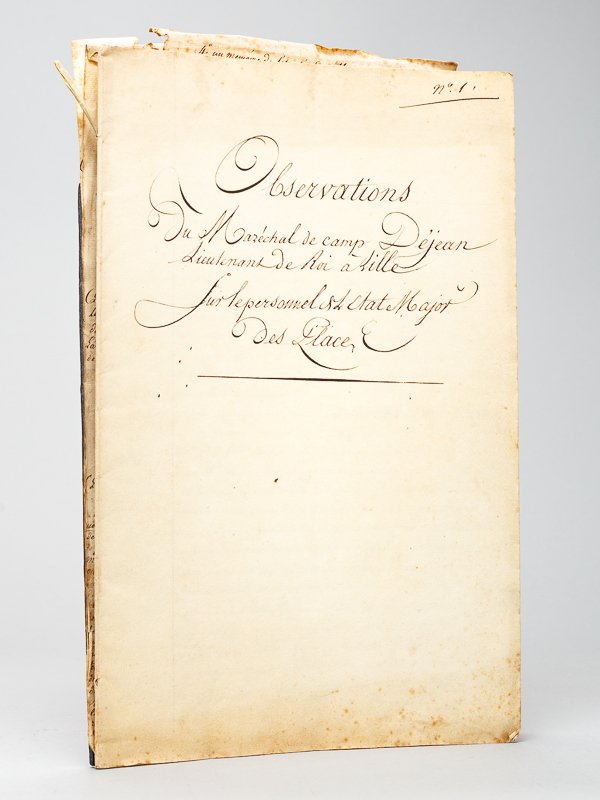 nº. 1.
Observations
Du Maréchal de camp Dejean
Lieutenant de Roi à Lille
Sur le personnel & L Etat Major
Des Places
4º un mémoire